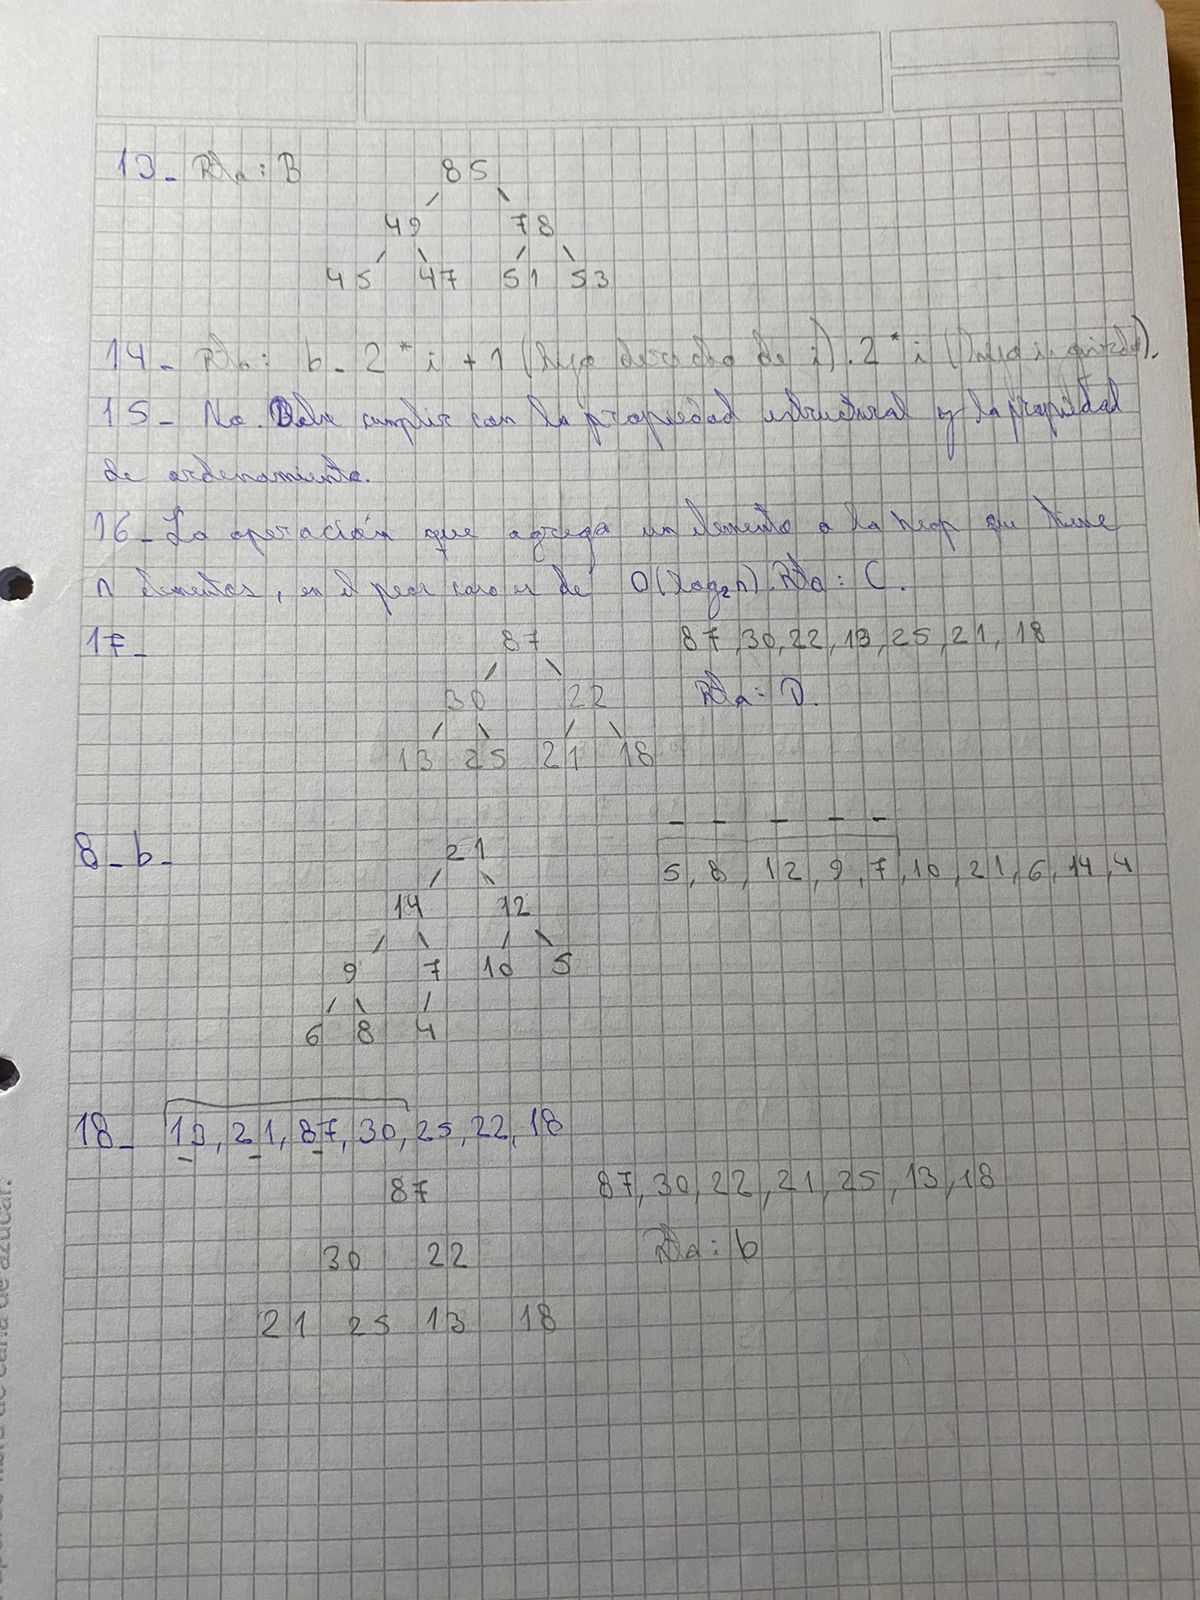 13- Rta: B 85
49 78
45 47 51 53
14- Rta: b- 2*i+1 (hijo derecho de i). 2*i (hijo izquierdo).
15- No. Debe cumplir con la propiedad estructural y la propiedad
de ordenamiento.
16- La operación que agrega un elemento a la heap que tiene
n elementos, en el peor caso es de O(log₂n). Rta: C.
17- 87 87,30,22,13,25,21,18
30 22 Rta: D.
13 25 21 18
8-b- 21 5,8,12,9,7,10,21,6,14,4
14 12
9 7 10 5
6 8 4
18- 13,21,87,30,25,22,18
87 87,30,22,21,25,13,18
30 22 Rta: b
21 25 13 18